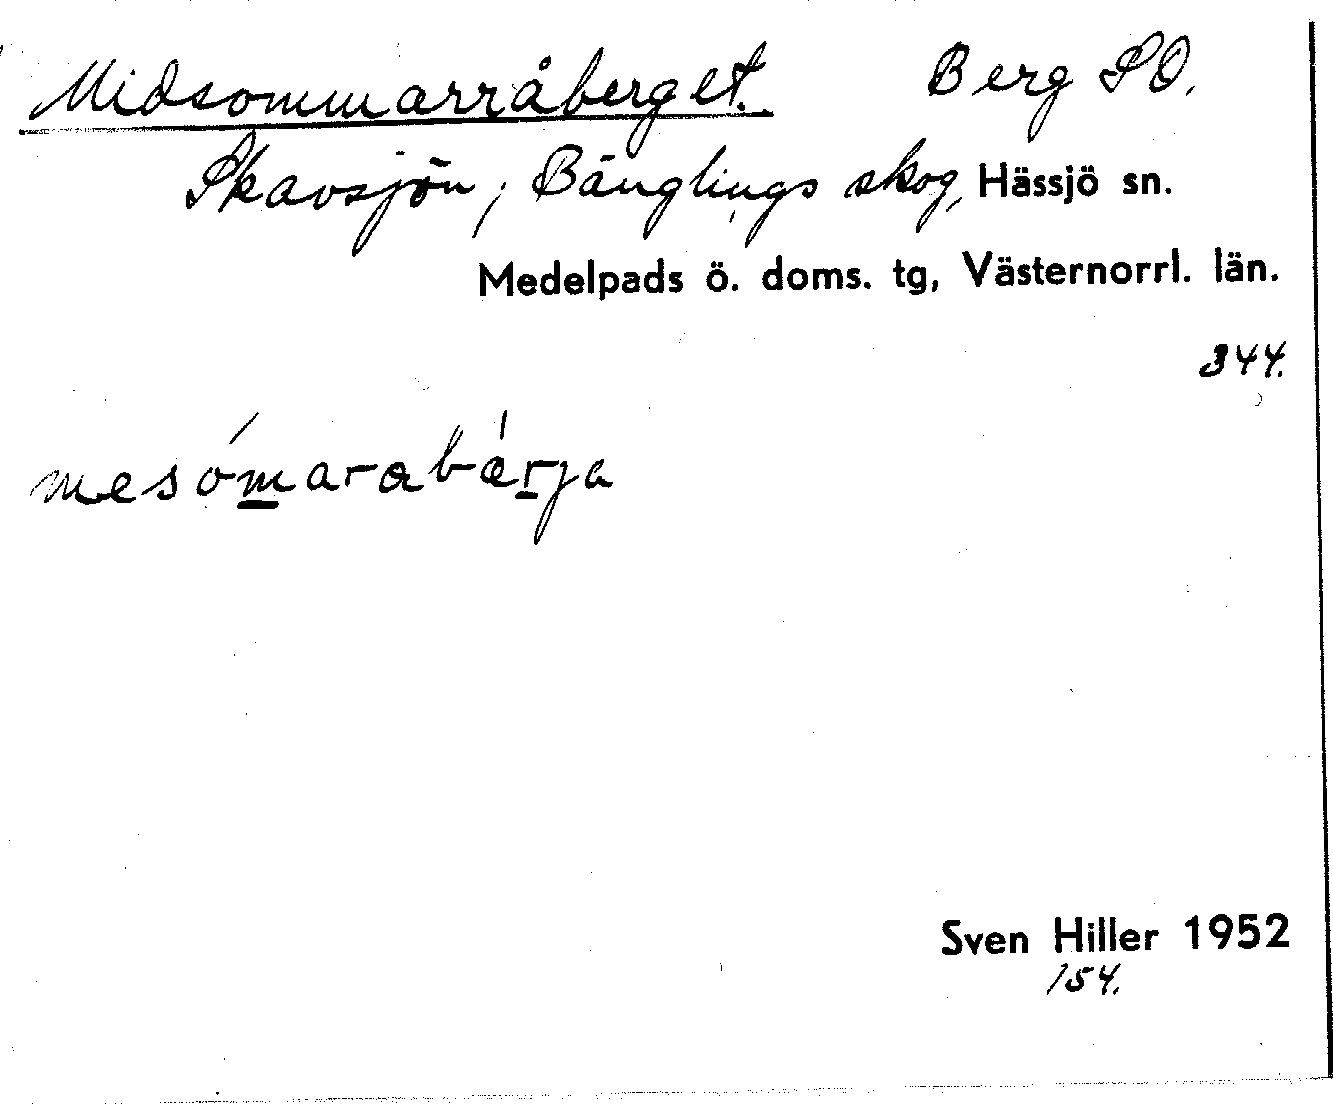 Midsommarråberget. Berg SO.
Skavsjön, Bänglings skog, Hässjö sn.
Medelpads ö. doms. tg, Västernorrl. län.
344.
mesómarabárja
Sven Hiller 1952
154.